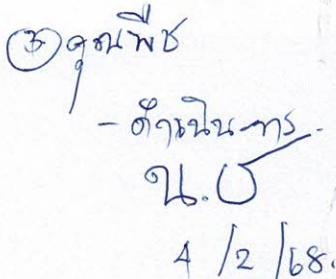 ③ คุณพืช
- ดำเนินการ
น.ช
4/2/68.